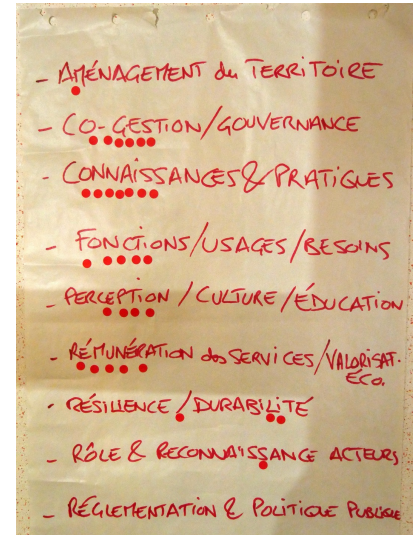 - AMÉNAGEMENT du TERRITOIRE
- CO-GESTION/GOUVERNANCE
- CONNAISSANCES & PRATIQUES
- FONCTIONS/USAGES/BESOINS
- PERCEPTION / CULTURE / ÉDUCATION
- RÉMUNÉRATION des SERVICES/VALORISAT.
ÉCO.
- RÉSILIENCE / DURABILITÉ
- RÔLE & RECONNAISSANCE ACTEURS
- RÉGLEMENTATION & POLITIQUE PUBLIQUE